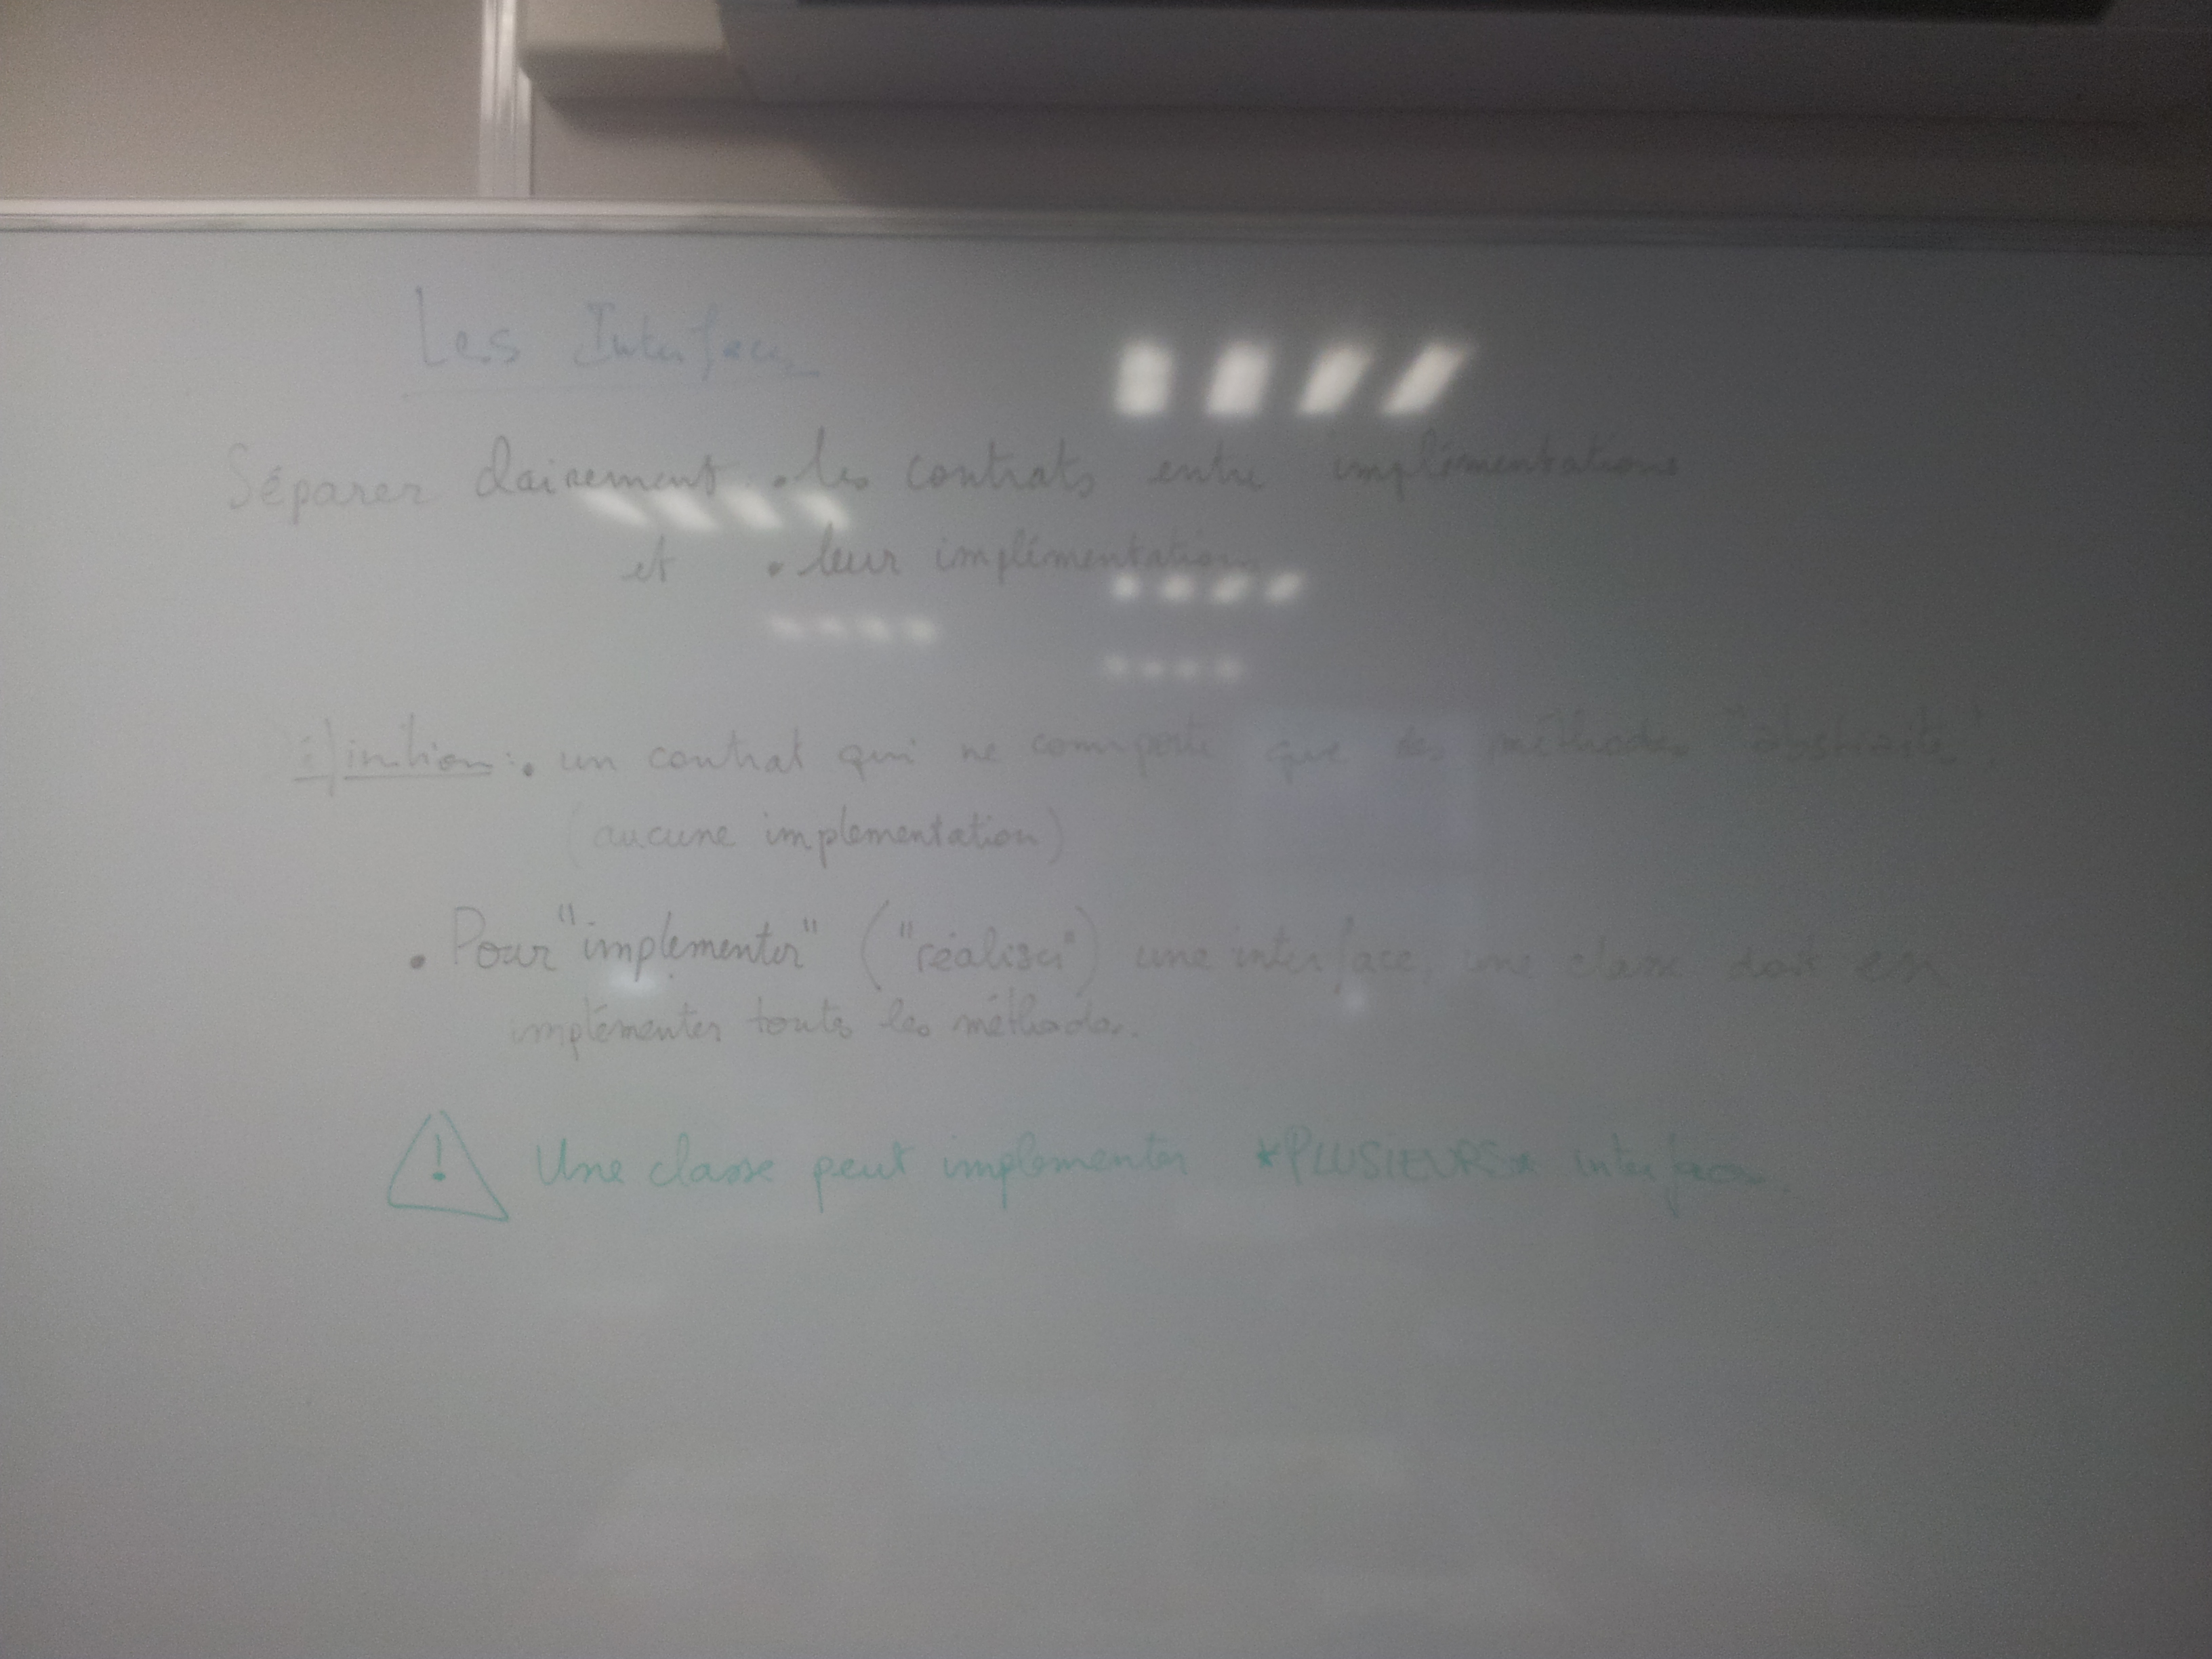 Les Interfaces
Séparer clairement • les contrats entre implémentations
et • leur implémentation
Définition : • un contrat qui ne comporte que des méthodes "abstraites".
(aucune implementation)
• Pour "implementer" ("réaliser") une interface, une classe doit en
implémenter toutes les méthodes.
! Une classe peut implementer *PLUSIEURS* interfaces.